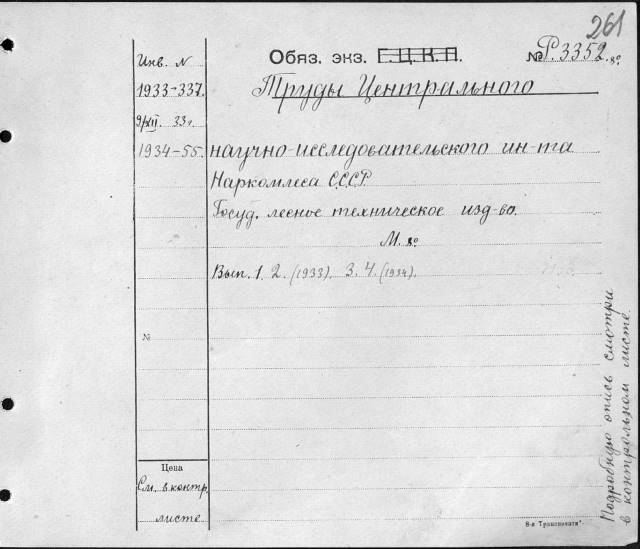 261
Обяз. экз. Г.Ц.К.П.
№ Р.3352. 8º
Инв. N
1933-337.
9/XII. 33 г.
1934-55.
Труды Центрального
научно-исследовательского ин-та
Наркомлеса С.С.С.Р.
Госуд. лесное техническое изд-во.
М. 8º
Вып. 1. 2. (1933). 3. 4. (1934).
№
Цена
См. в контр.
листе
Подробную опись смотри
в контрольном листе.